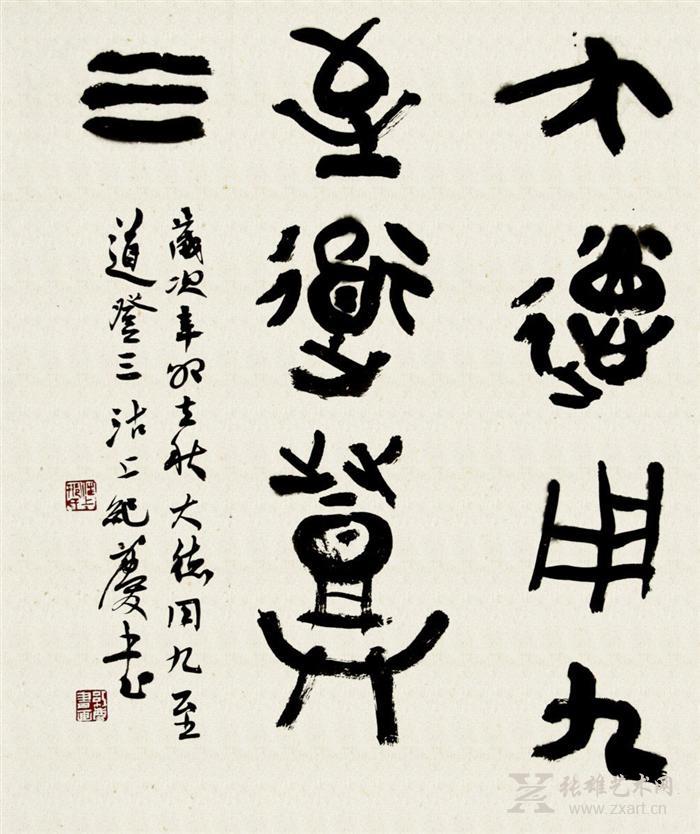 大德周九
至道登
三
歲次辛卯立秋大德周九至
道登三沽上紀慶書
张雄艺术网
www.zxart.cn